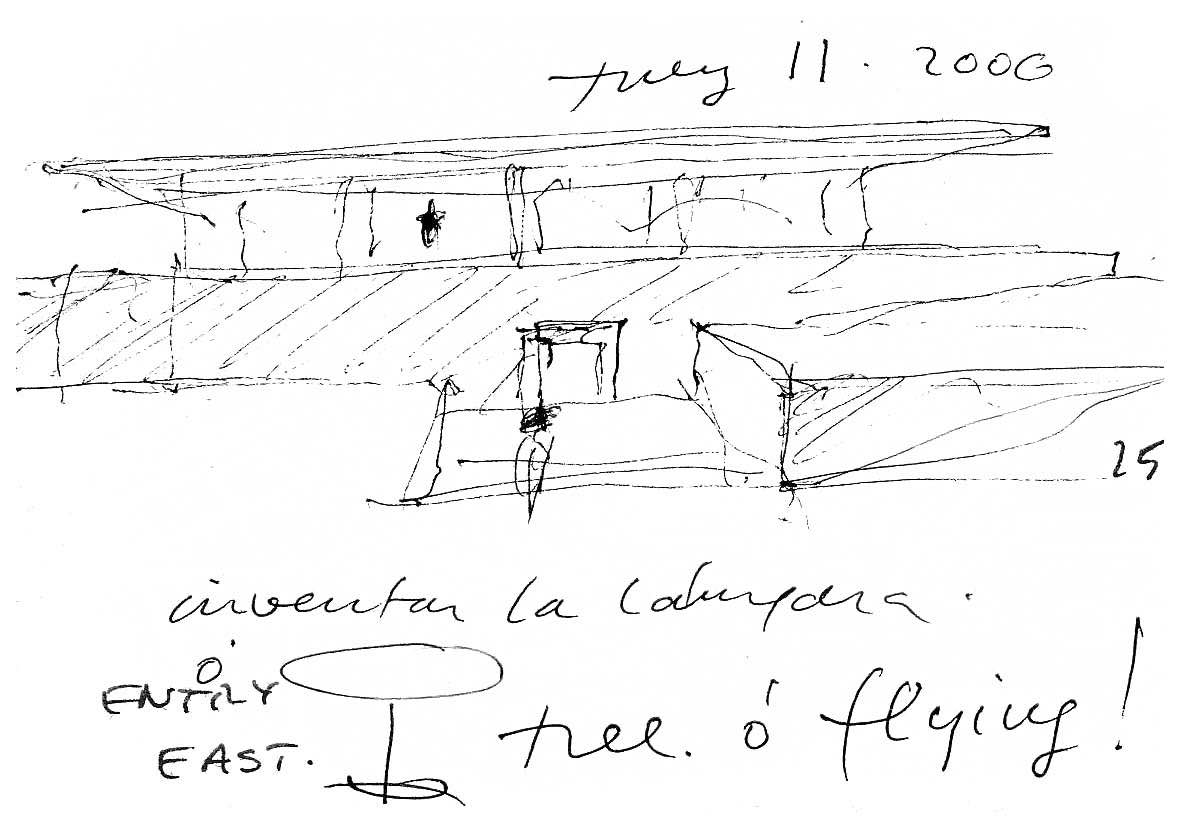 July 11 . 2006
25
inventar la
ó
ENTRY
EAST.
tree. ó flying!